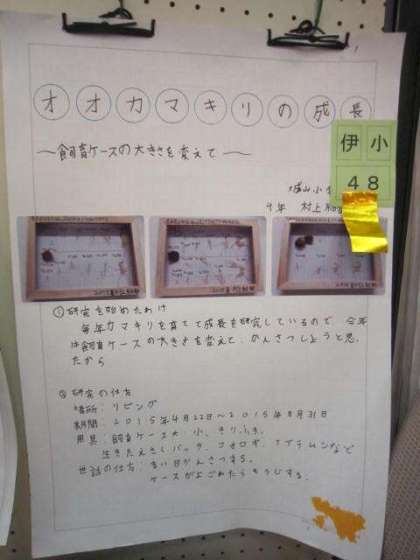 オオカマキリの成長
〜飼育ケースの大きさを変えて〜
伊小
48
城山小
年 村上
①研究を始めたわけ
毎年カマキリを育てて成長を研究しているので、今年
は飼育ケースの大きさを変えて、かんさつしようと思っ
たから
②研究の仕方
場所:リビング
期間:2015年4月22日〜2015年8月31日
用具:飼育ケース大・小、きりふき、
生きたえさ(バッタ、コオロギ、など
世話の仕方:毎日かんさつする。
ケースがよごれたらそうじする。